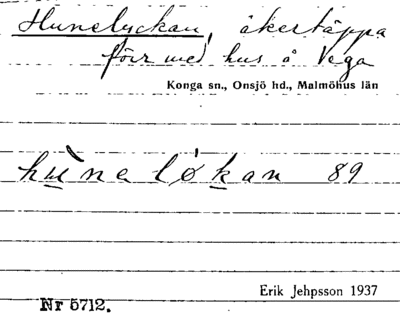 Hunelyckan, åkertäppa
förr med hus å Vega
Konga sn., Onsjö hd., Malmöhus län
hùne ló̷kan 89
Erik Jehpsson 1937
Nr 5712.